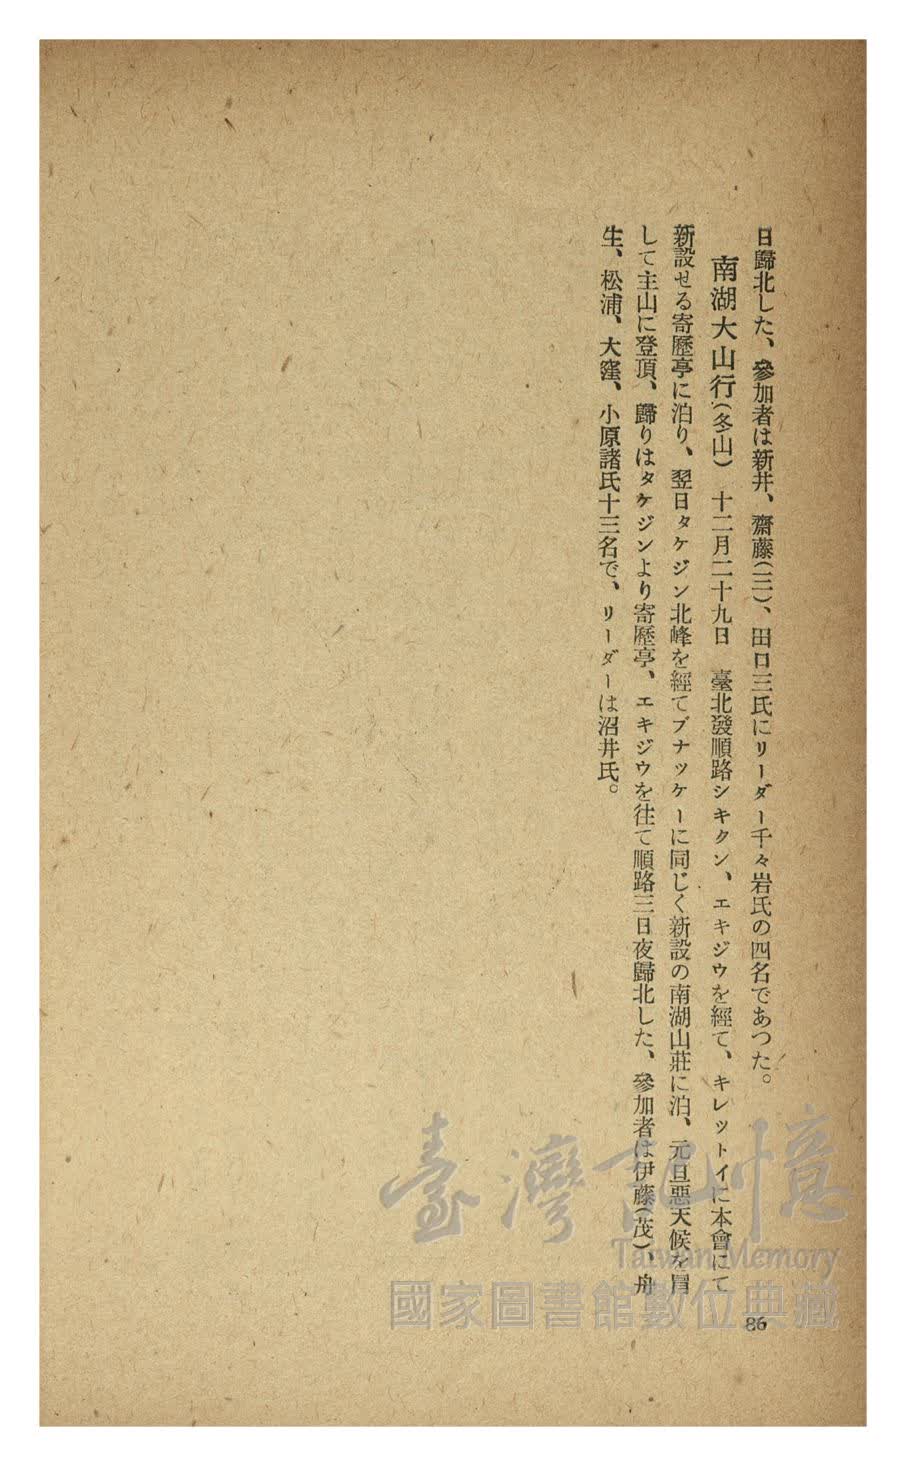 日歸北した、參加者は新井、齋藤(三)、田口三氏にリーダー千々岩氏の四名であつた。
南湖大山行(冬山) 十二月二十九日 臺北發順路シキクン、エキジウを經て、キレットイに本會にて
新設せる寄歷亭に泊り、翌日タケジン北峰を經てブナッケーに同じく新設の南湖山莊に泊、元旦惡天候を冒
して主山に登頂、歸りはタケジンより寄歷亭、エキジウを往て順路三日夜歸北した、參加者は伊藤(茂)、舟
生、松浦、大窪、小原諸氏十三名で、リーダーは沼井氏。
86
臺灣記憶
Taiwan Memory
國家圖書館數位典藏